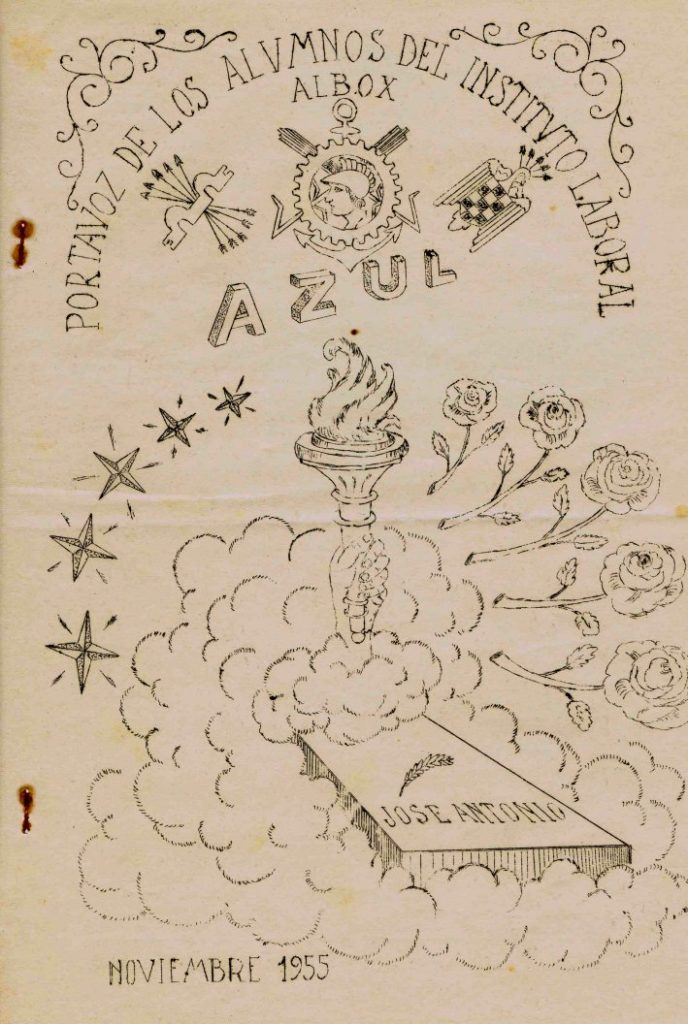 PORTAVOZ DE LOS ALVMNOS DEL INSTITVTO LABORAL
ALBOX
AZUL
JOSE ANTONIO
NOVIEMBRE 1955